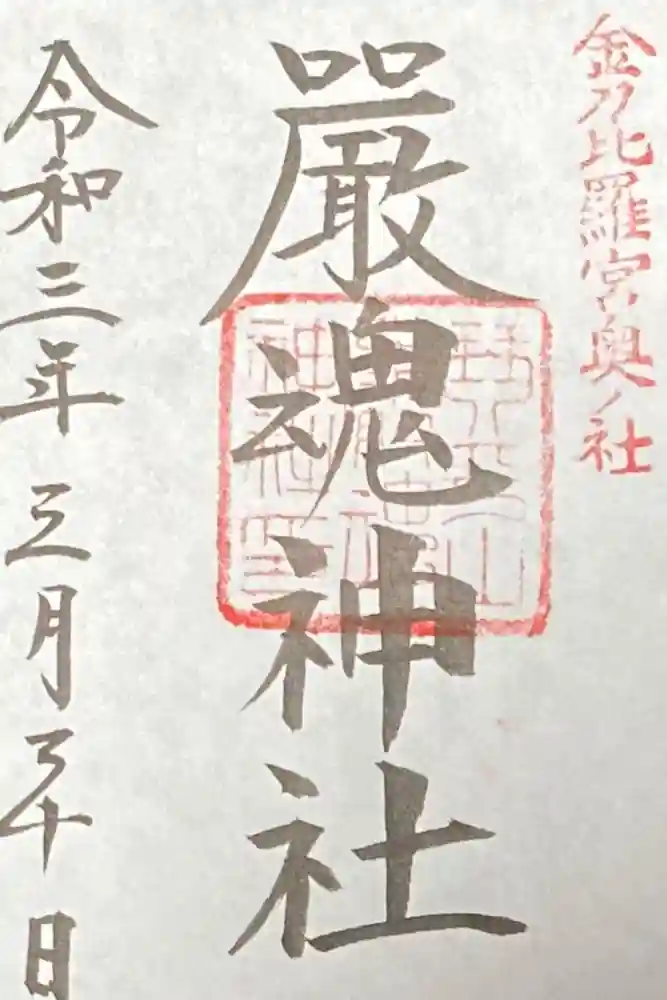 金刀比羅宮奥ノ社
嚴魂神社
令和三年三月二十日